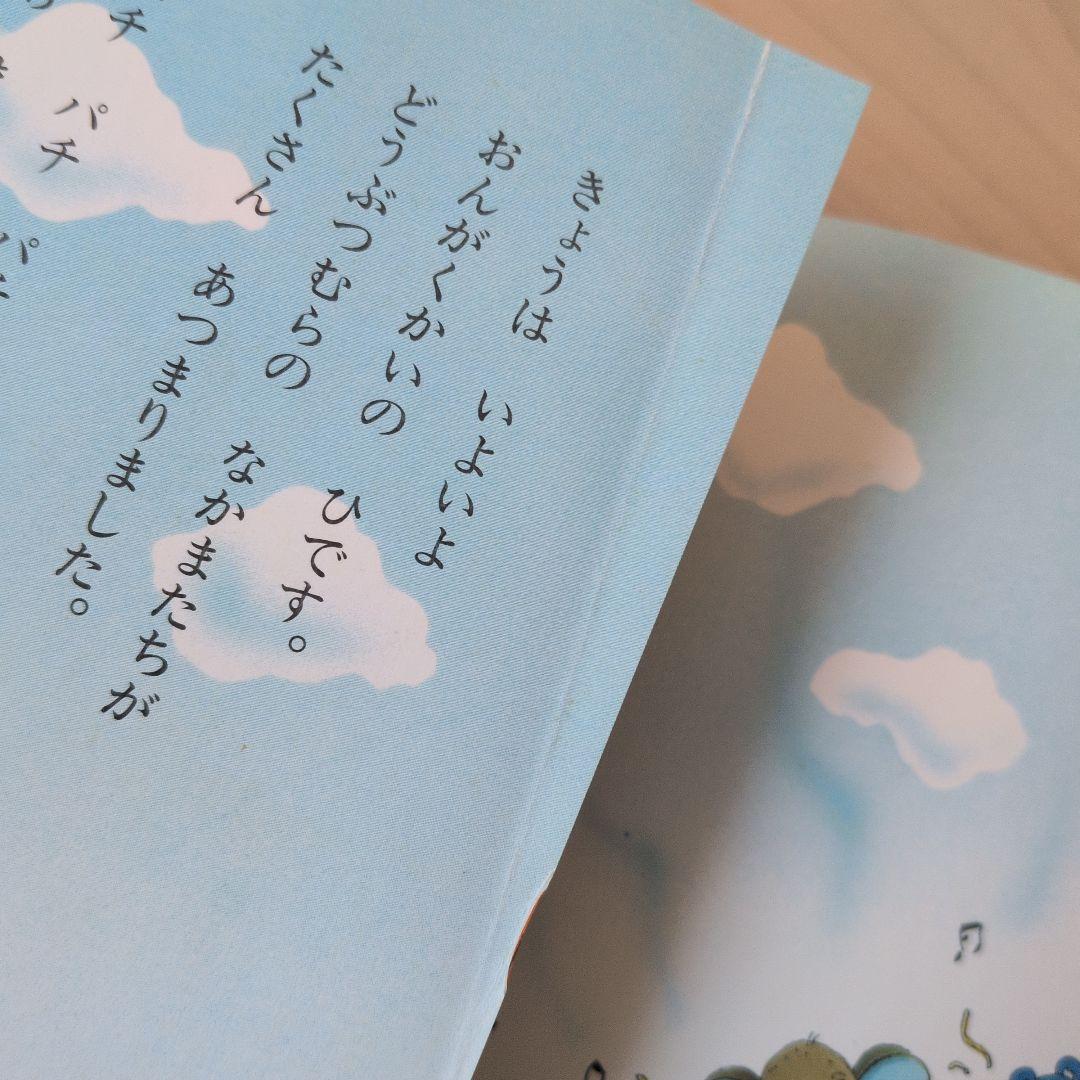 きょうは　いよいよ
おんがくかいの　ひです。
どうぶつむらの　なかまたちが
たくさん　あつまりました。
パチ